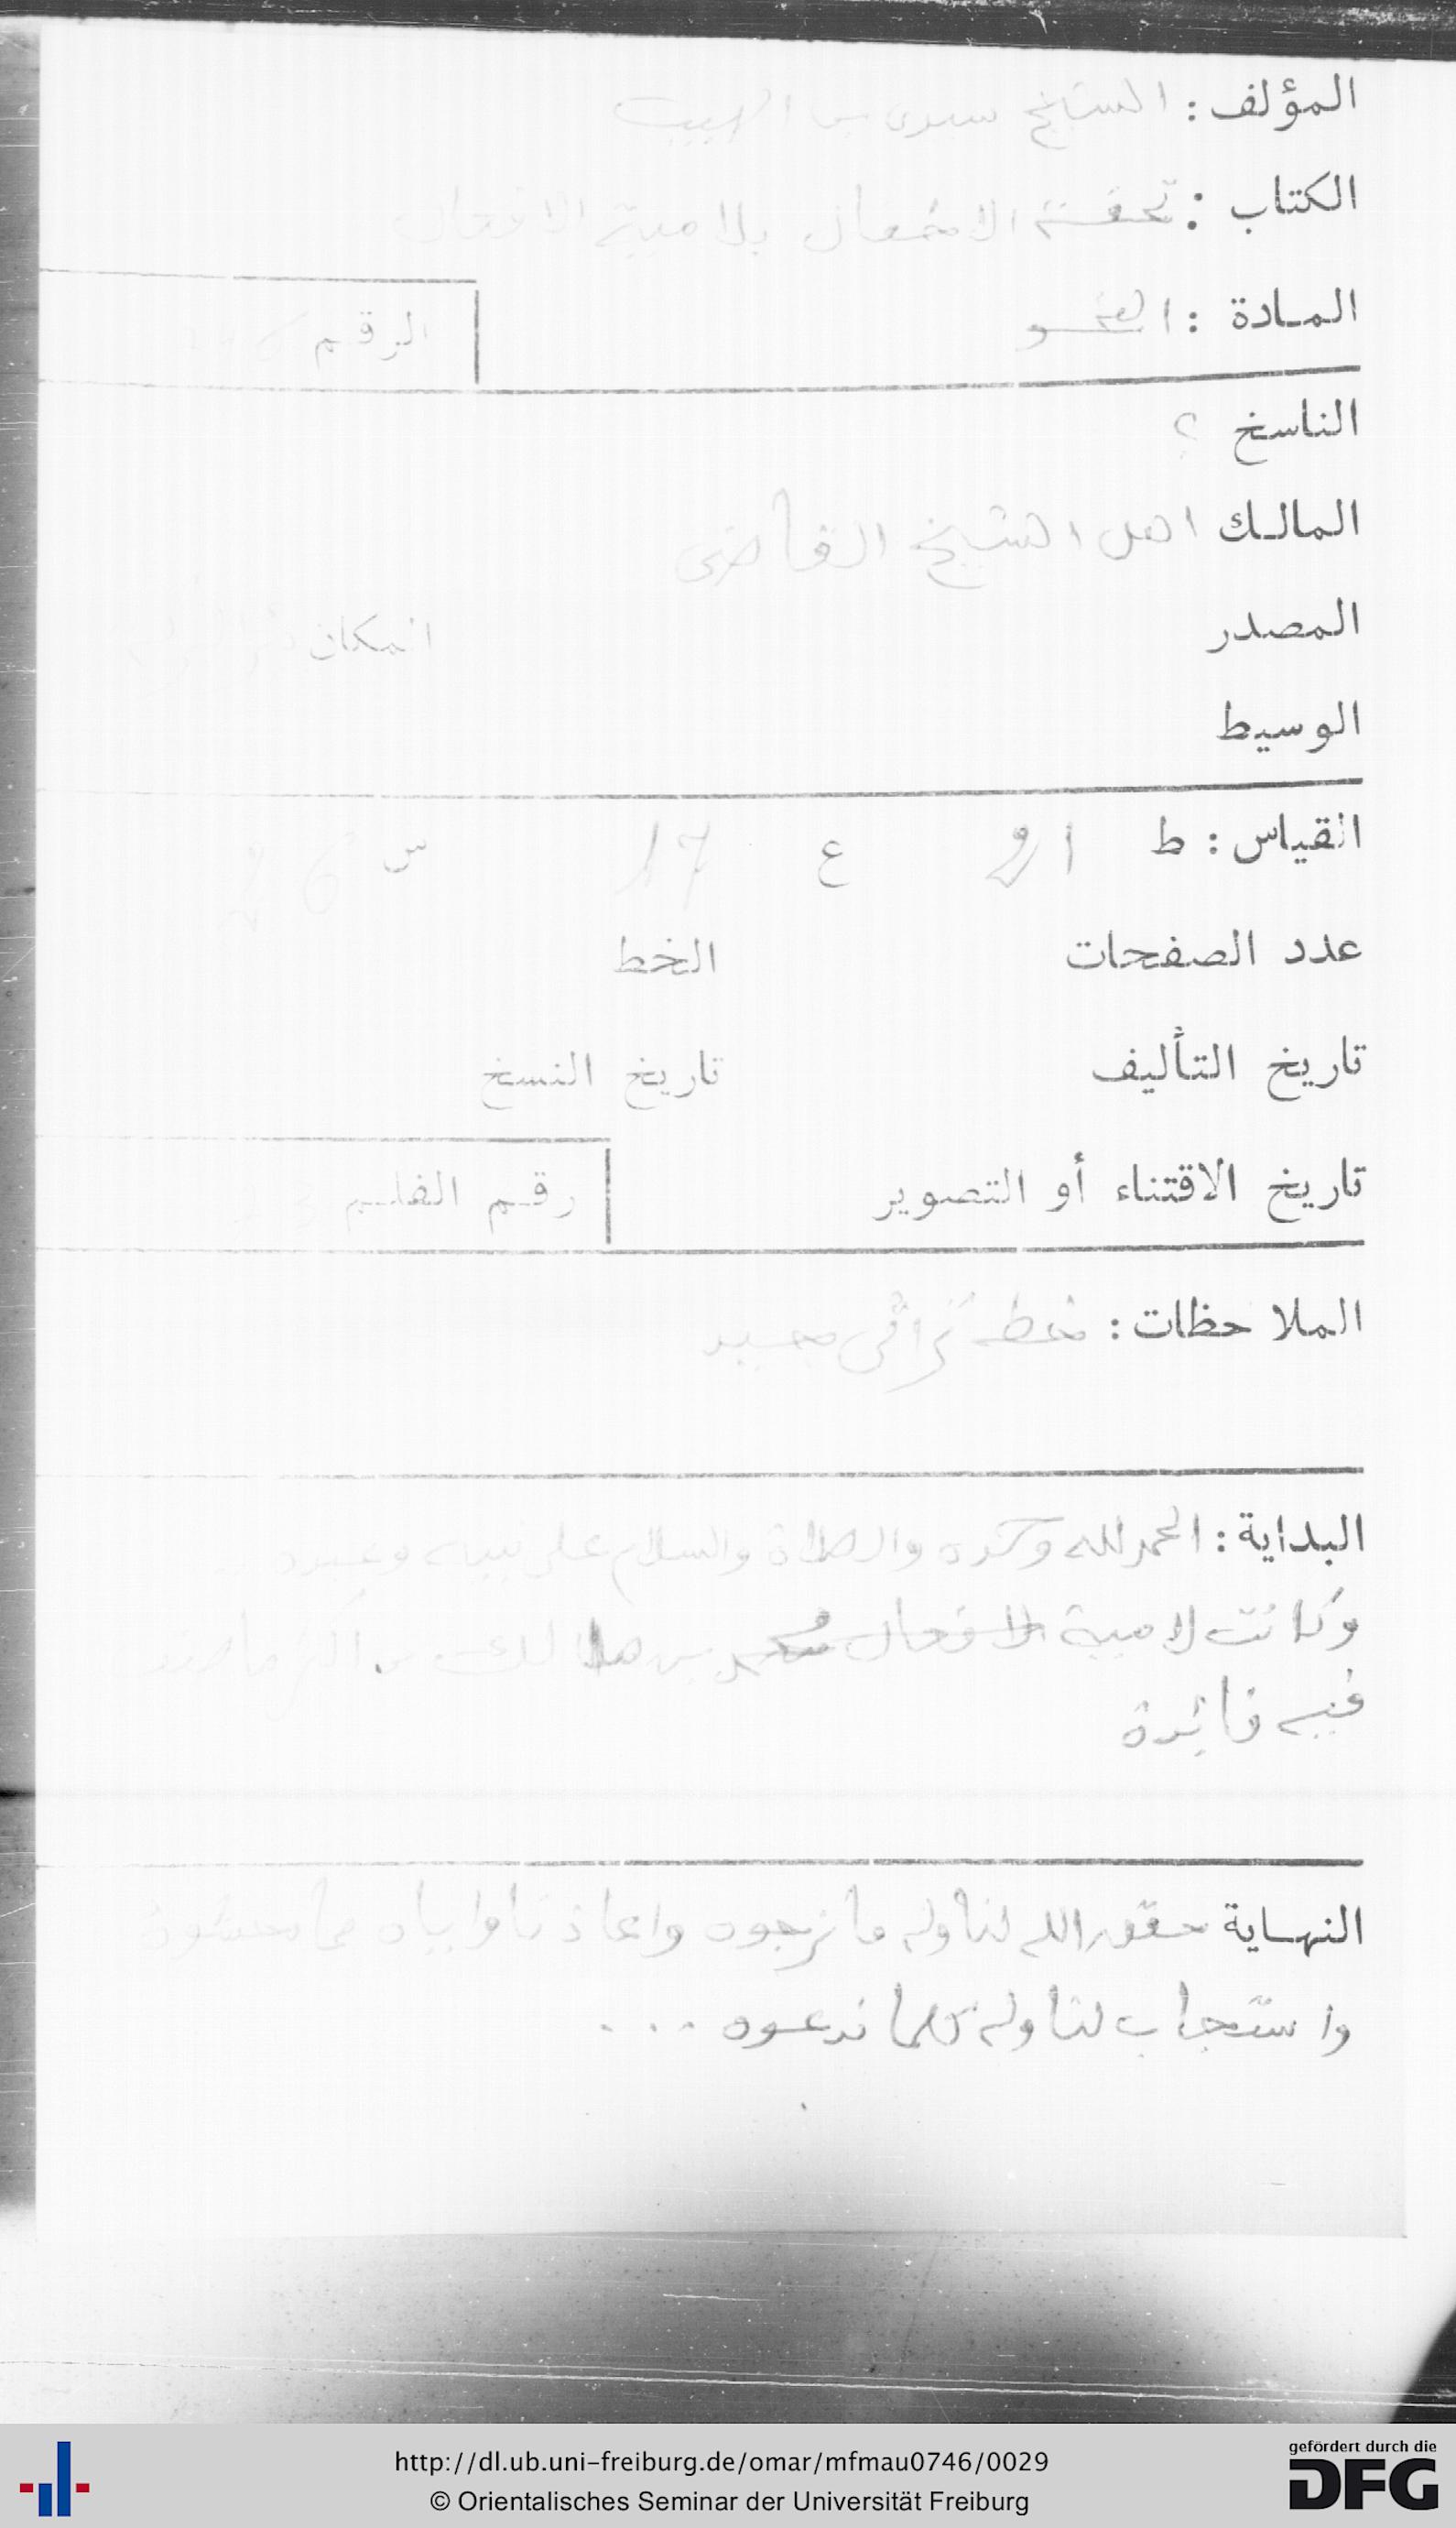 المؤلف : الشيخ سيدي بن الهيب
الكتاب : تحفة الاطفال بلامية الافعال
المادة : النحو
الرقم
الناسخ ؟
المالك اهل الشيخ القاضي
المصدر
المكان
الوسيط
القياس : ط ع 17 س
عدد الصفحات الخط
تاريخ التأليف تاريخ النسخ
تاريخ الاقتناء أو التصوير رقم الفلم
الملاحظات : خطه جيد
البداية : الحمد لله وحده والصلاة والسلام على نبيه وعبده
وكانت لامية الافعال لمحمد بن مالك من اكثر ما
فيه فائدة
النهاية حقق الله لنا وله ما نرجوه واعاذنا واياه مما نخشوه
واستجاب لنا وله كلما ندعوه ...
http://dl.ub.uni-freiburg.de/omar/mfmau0746/0029
© Orientalisches Seminar der Universität Freiburg
gefördert durch die
DFG